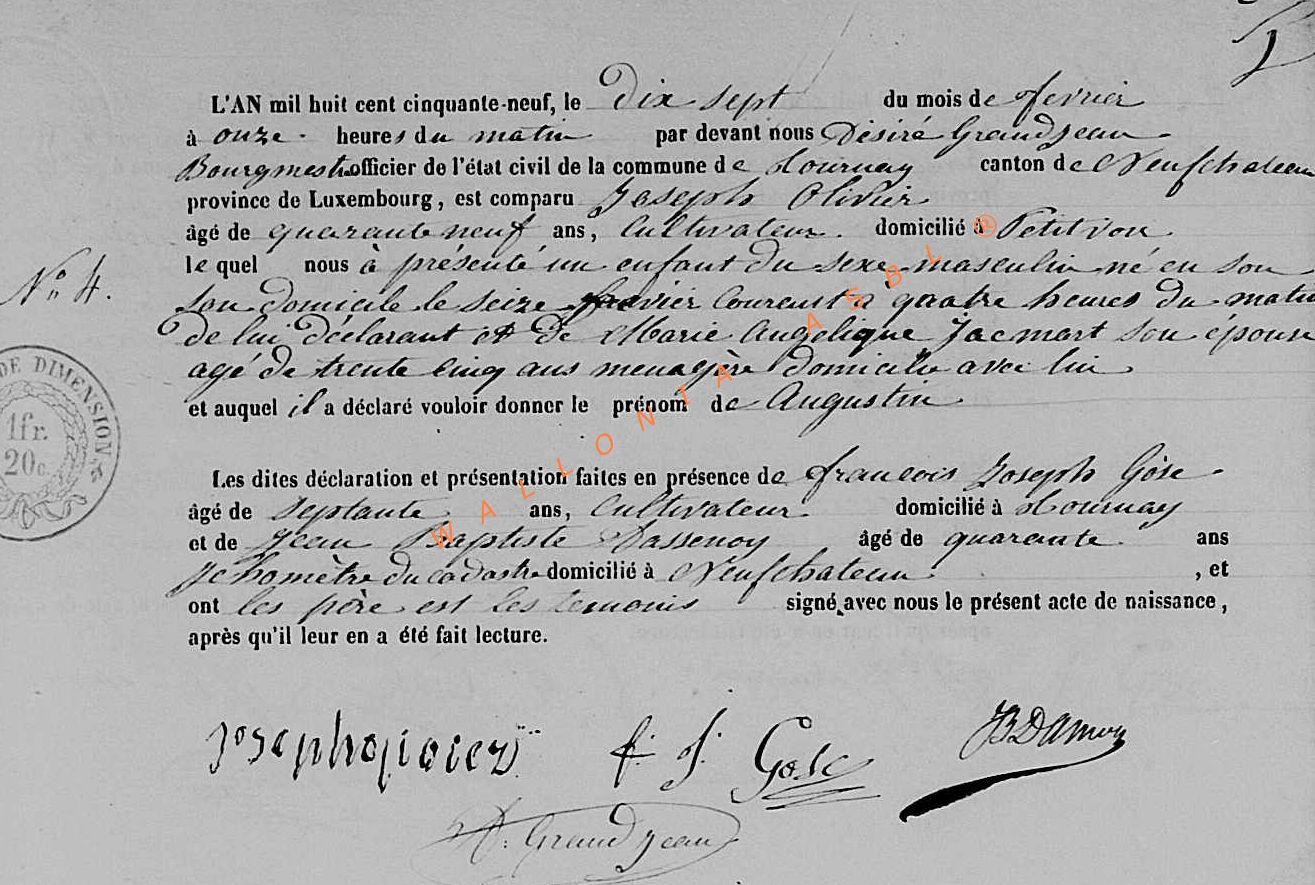 L'AN mil huit cent cinquante-neuf, le dix sept du mois de fevrier
à onze heures du matin par devant nous Désiré Grandjean
Bourgmestre officier de l'état civil de la commune de Tournay canton de Neufchateau
province de Luxembourg, est comparu Joseph Olivier
âgé de quarante neuf ans, Cultivateur domicilié à Petitvoir
le quel nous à présenté un enfant du sexe masculin né en son
N° 4.
son domicile le seize fevrier Courent à quatre heures du matin
de lui déclarant et de Marie Angelique Jacmart son épouse
agé de trente cinq ans menagère domicilie avec lui
DE DIMENSION
1fr.
20c.
et auquel il a déclaré vouloir donner le prénom de Augustin
Les dites déclaration et présentation faites en présence de francois Joseph Gose
âgé de septante ans, Cultivateur domicilié à Tournay
et de Jean Baptiste âgé de quarante ans
du cadastre domicilié à Neufchateau, et
ont les père est les temonis signé avec nous le présent acte de naissance,
après qu'il leur en a été fait lecture.
f: J: Gose
D: Grandjean
WALLONIA ASBL ®